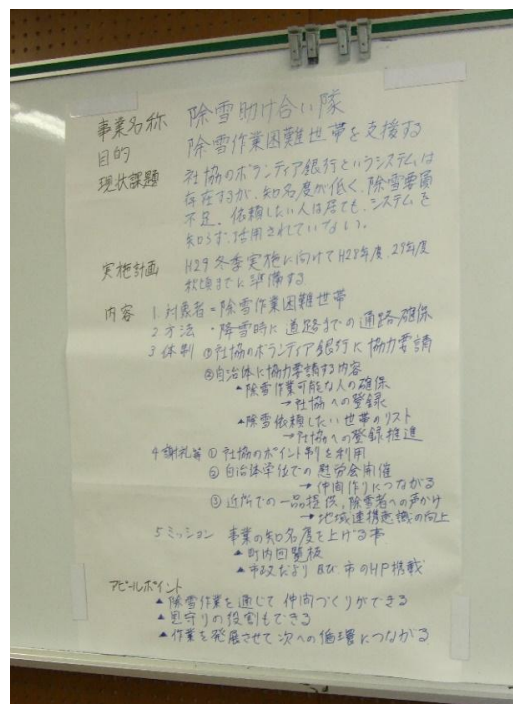 事業名称 除雪助け合い隊
目的 除雪作業困難世帯を支援する
現状課題 社協のボランティア銀行というシステムは
存在するが、知名度が低く、除雪要員
不足。依頼したい人は居ても、システムを
知らず、活用されていない。
実施計画 H29冬季実施に向けてH28年度、29年度
秋頃までに準備する
内容 1 対象者=除雪作業困難世帯
2 方法・降雪時に道路までの通路確保
3 体制 ①社協のボランティア銀行に協力要請
②自治体に協力要請する内容
▲除雪作業可能な人の確保
→社協への登録
▲除雪依頼したい世帯のリスト
→社協への登録推進
4 謝礼等 ①社協のポイント制を利用
②自治体単位での慰労会開催
→仲間作りにつながる
③近所での一品提供、除雪者への声かけ
→地域連携意識の向上
5 ミッション 事業の知名度を上げる事
▲町内回覧板
▲市政だより及び市のHP掲載
アピールポイント
▲除雪作業を通じて仲間づくりができる
▲見守りの役割もできる
▲作業を発展させて次への循環につながる